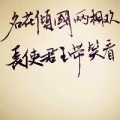 名花傾國兩相欢
長使君王帶笑看